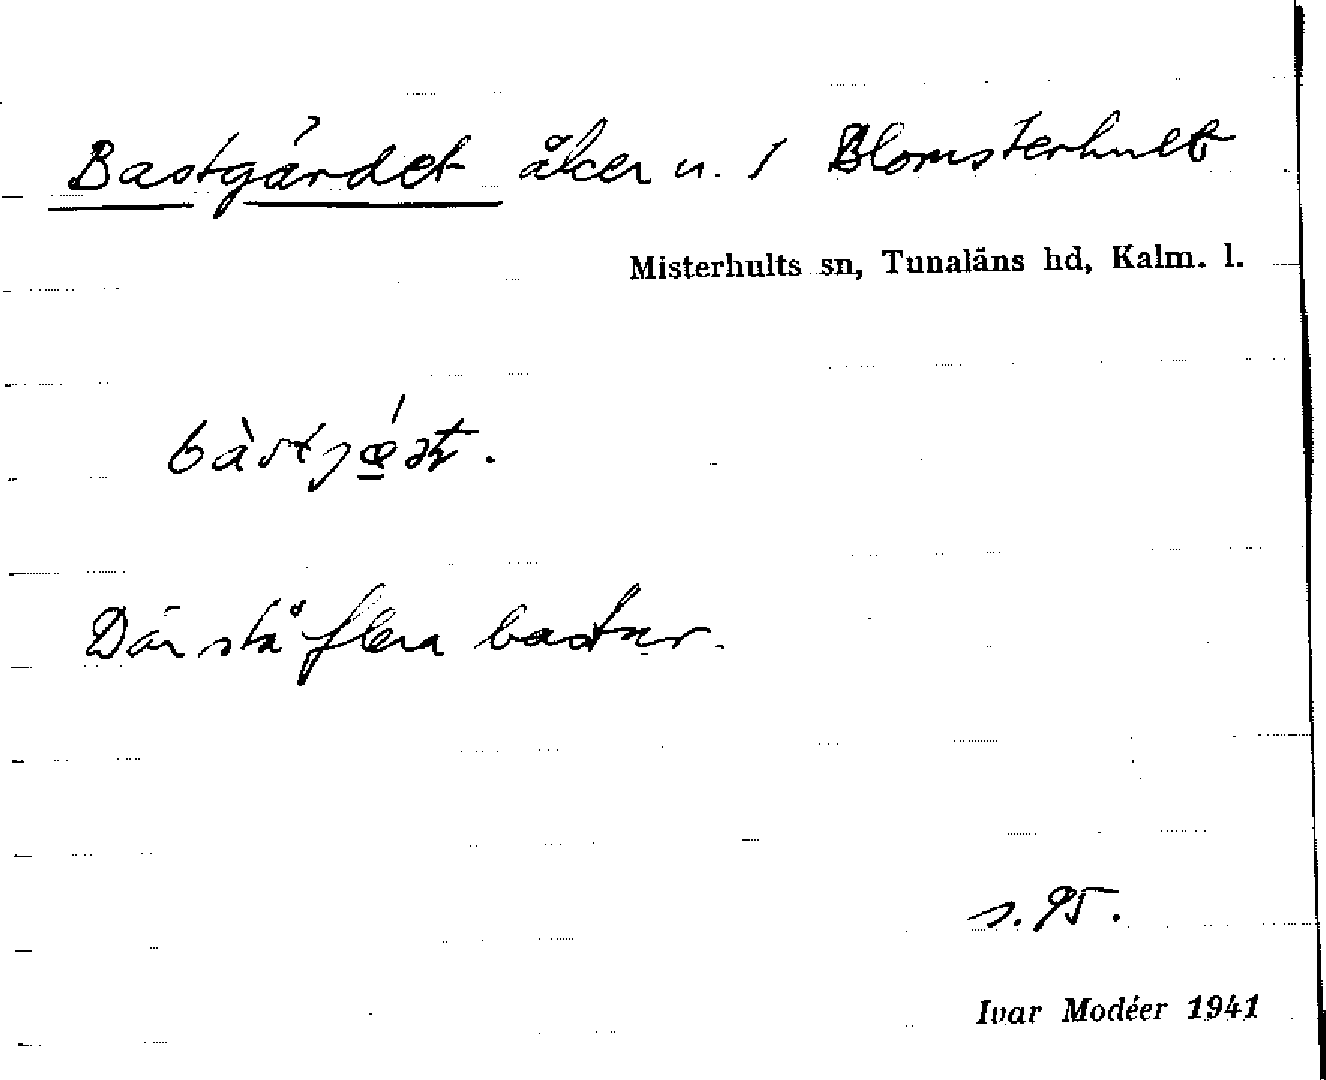 Bastgärdet åker u. 1 Blomsterhult
Misterhults sn, Tunaläns hd, Kalm. l.
Där stå flera bastur.
s. 95.
Ivar Modéer 1941